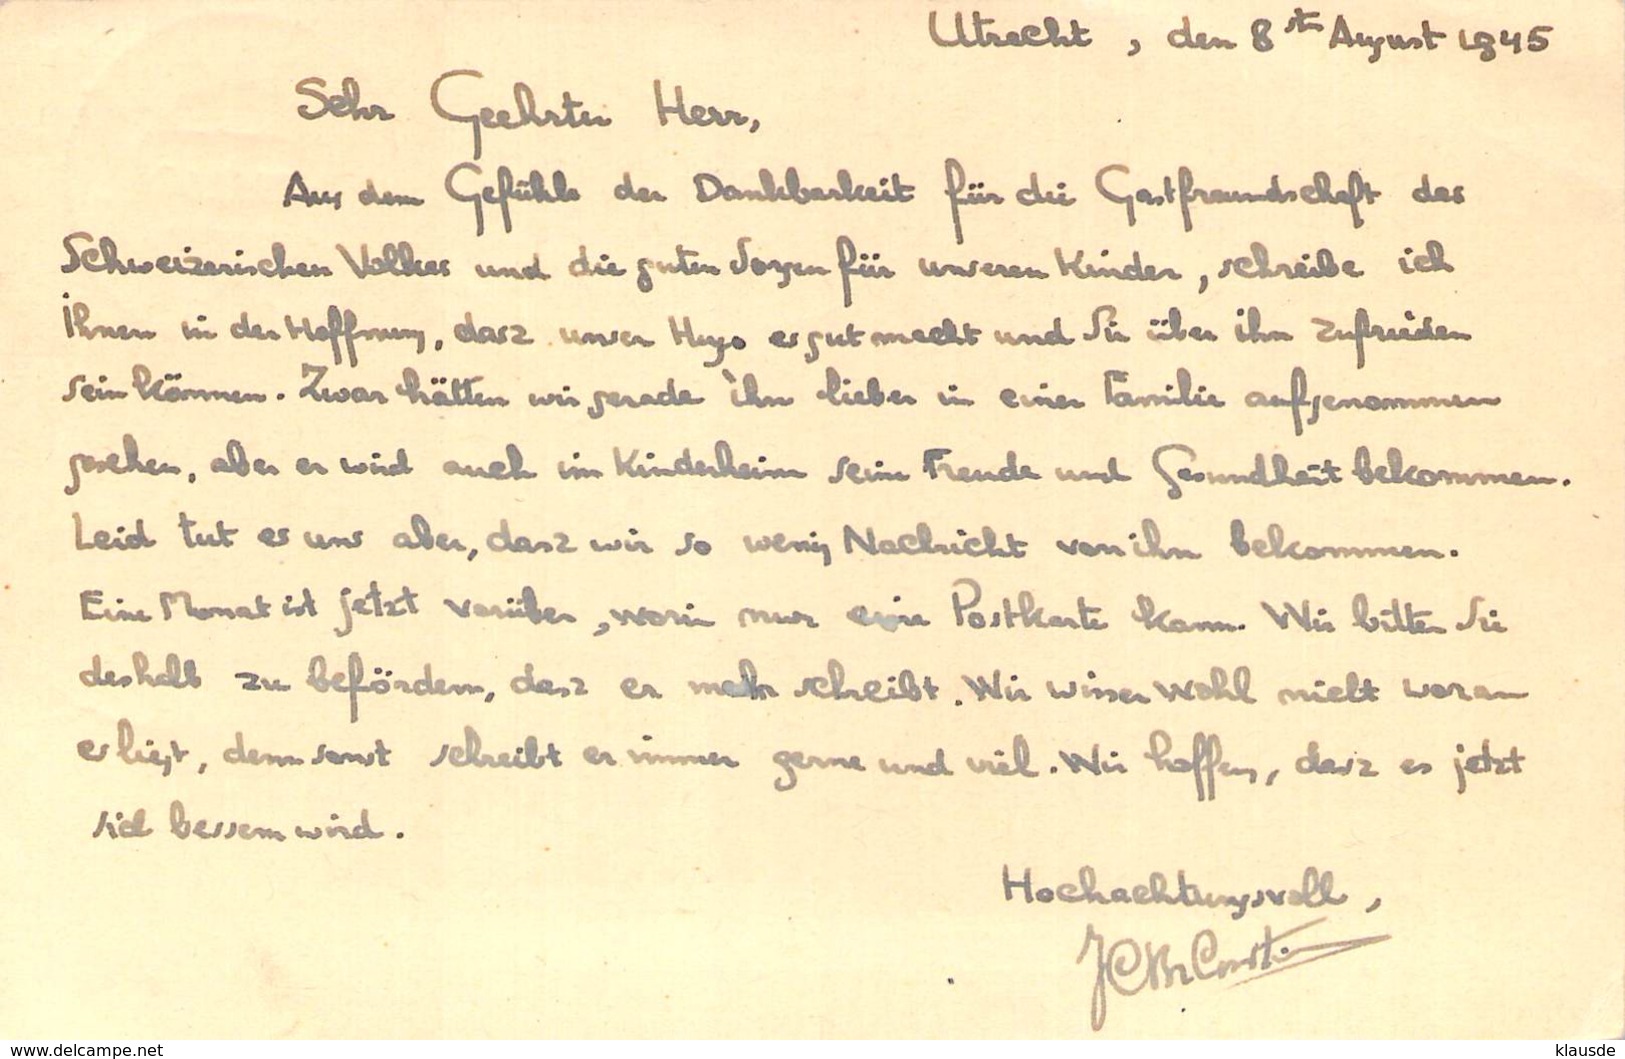 Utrecht, den 8sten August 1945
Sehr Geehrter Herr,
Aus dem Gefühle der Dankbarkeit für die Gastfreundschaft des
Schweizerischen Volkes und die guten Sorgen für unseren Kinder, schreibe ich
Ihnen in der Hoffnung, dasz unser Hugo es gut macht und Sie über ihn zufrieden
sein können. Zwar hätten wir gerade ihn lieber in einer Familie aufgenommen
gesehen, aber er wird auch im Kinderheim seine Freude und Gesundheit bekommen.
Leid tut es uns aber, dasz wir so wenig Nachricht von ihn bekommen.
Eine Monat ist jetzt vorüber, worin nur eine Postkarte kam. Wir bitten Sie
deshalb zu befördern, dasz er mehr schreibt. Wir wissen wohl nicht woran
es liegt, denn sonst schreibt er immer gerne und viel. Wir hoffen, dasz es jetzt
sich bessern wird.
Hochachtungsvoll,
www.delcampe.net
klausde